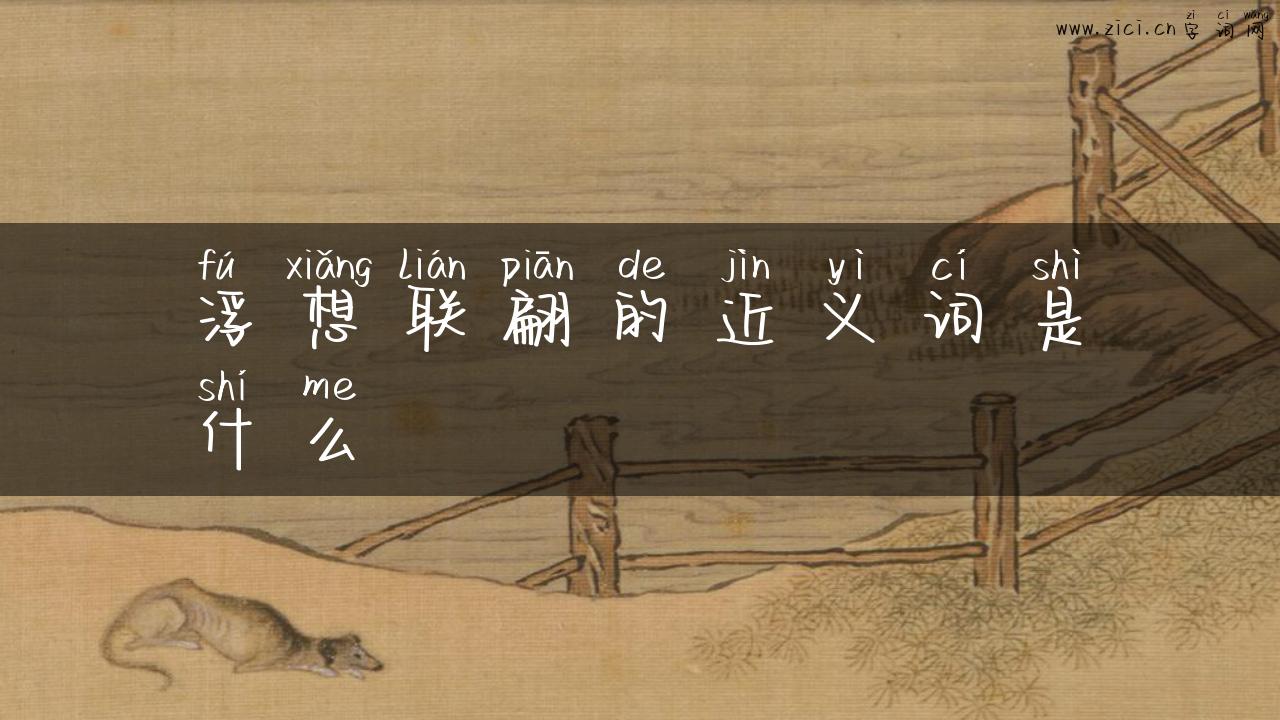 zì cí wǎng
www.zici.cn 字词网
fú xiǎng lián piān de jìn yì cí shì
浮想联翩的近义词是
shí me
什么